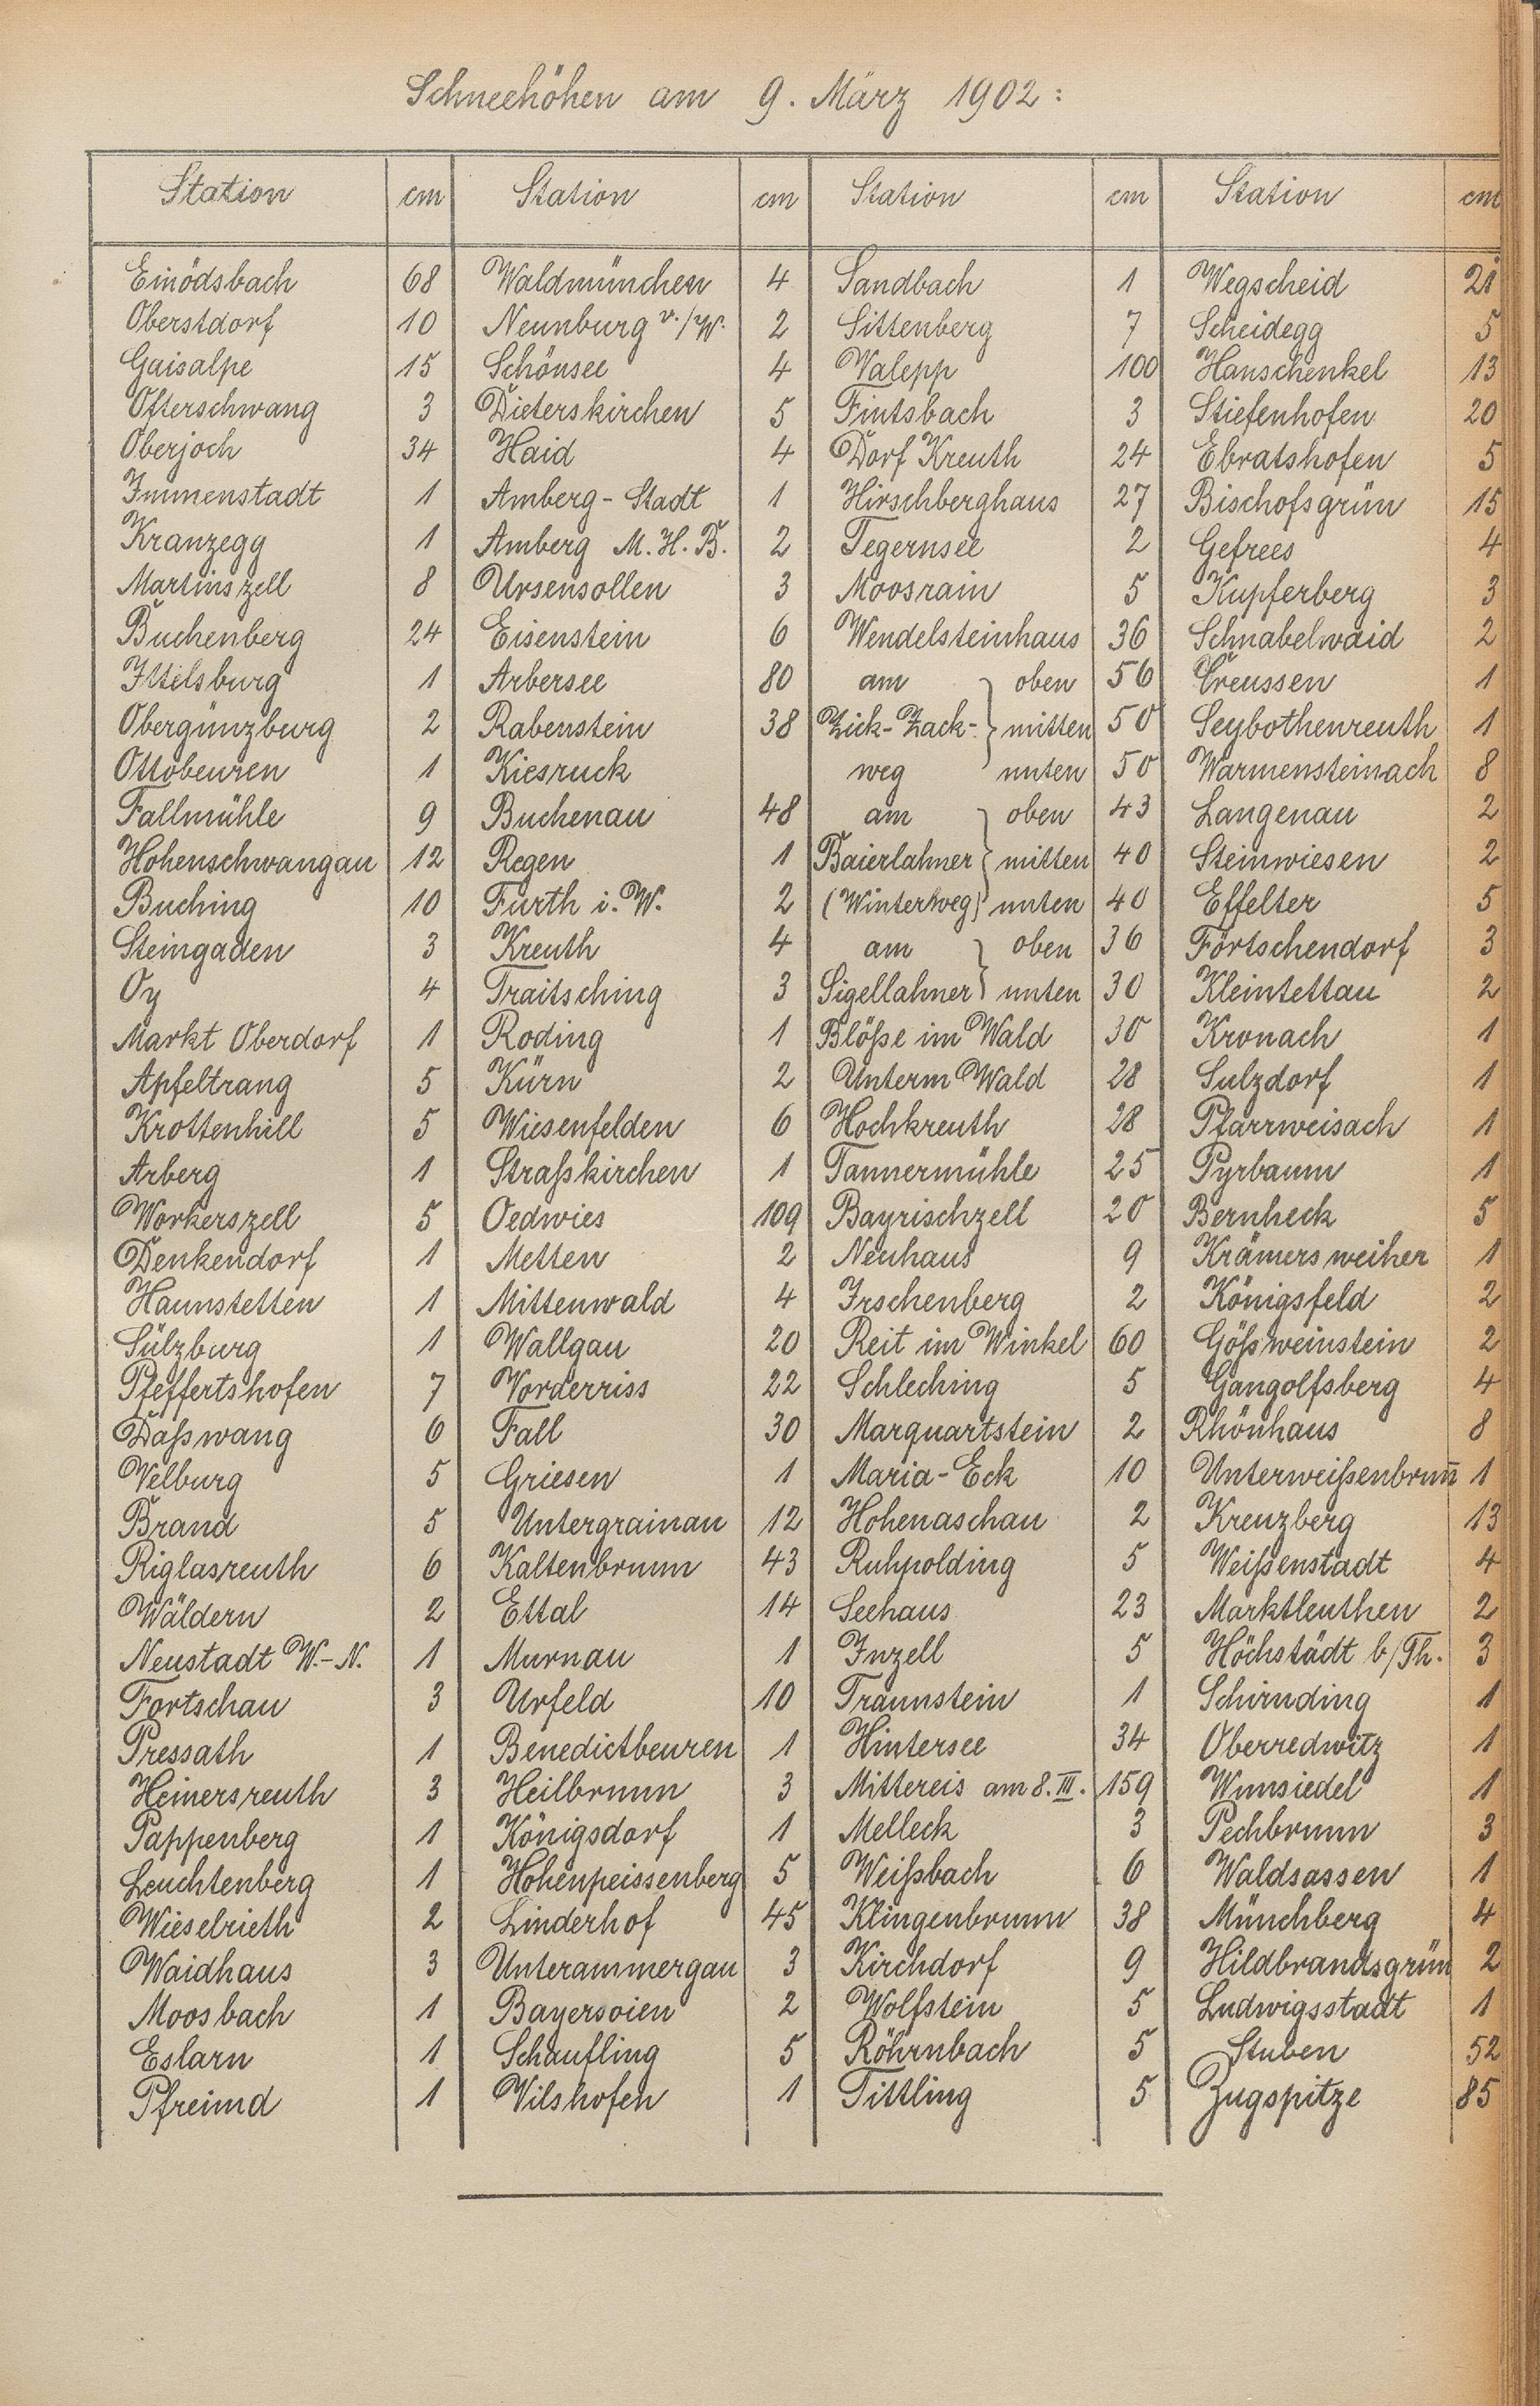 Schneehöhen am 9. März 1902:
Station cm Station cm Station cm Station cm
Einödsbach 68 Waldmünchen 4 Sandbach 1 Wegscheid 21
Oberstdorf 10 Neunburg v./W. 2 Sittenberg 7 Scheidegg 5
Gaisalpe 15 Schönsee 4 Valepp 100 Hanschenkel 13
Ofterschwang 3 Dieterskirchen 5 Fintsbach 3 Stiefenhofen 20
Oberjoch 34 Haid 4 Dorf Kreuth 24 Ebratshofen 5
Immenstadt 1 Amberg-Stadt 1 Hirschberghaus 27 Bischofsgrün 15
Kranzegg 1 Amberg M.H.B. 2 Tegernsee 2 Gefrees 4
Martinszell 8 Ursensollen 3 Moosrain 5 Kupferberg 3
Buchenberg 24 Eisenstein 6 Wendelsteinhaus 36 Schnabelwaid 2
Ittelsburg 1 Arbersee 80 am oben 56 Creussen 1
Obergünzburg 2 Rabenstein 38 Zick-Zack- mitten 50 Seybothenreuth 1
Ottobeuren 1 Kiesruck weg unten 50 Warmensteinach 8
Fallmühle 9 Buchenau 48 am oben 43 Langenau 2
Hohenschwangau 12 Regen 1 Baierlahner mitten 40 Steinwiesen 2
Buching 10 Furth i. W. 2 (Winterweg) unten 40 Effelter 5
Steingaden 3 Kreuth 4 am oben 36 Förtschendorf 3
Oy 4 Traitsching 3 Sigellahner unten 30 Kleintettau 2
Markt Oberdorf 1 Roding 1 Blöße im Wald 30 Kronach 1
Apfeltrang 5 Kürn 2 Unterm Wald 28 Sulzdorf 1
Krottenhill 5 Wiesenfelden 6 Hochkreuth 28 Pfarrweisach 1
Arberg 1 Straßkirchen 1 Tannermühle 25 Pyrbaum 1
Workerszell 5 Oedwies 109 Bayrischzell 20 Bernheck 5
Denkendorf 1 Metten 2 Neuhaus 9 Krämersweiher 1
Haunstetten 1 Mittenwald 4 Irschenberg 2 Königsfeld 2
Sulzburg 1 Wallgau 20 Reit im Winkel 60 Gößweinstein 2
Pfeffertshofen 7 Vorderriss 22 Schleching 5 Gangolfsberg 4
Daßwang 6 Fall 30 Marquartstein 2 Rhönhaus 8
Velburg 5 Griesen 1 Maria-Eck 10 Unterweißenbrun̄ 1
Brand 5 Untergrainau 12 Hohenaschau 2 Kreuzberg 13
Riglasreuth 6 Kaltenbrunn 43 Ruhpolding 5 Weißenstadt 4
Wäldern 2 Ettal 14 Seehaus 23 Marktleuthen 2
Neustadt W.-N. 1 Murnau 1 Inzell 5 Höchstädt b/Th. 3
Fortschau 3 Urfeld 10 Traunstein 1 Schirnding 1
Pressath 1 Benedictbeuren 1 Hintersee 34 Oberredwitz 1
Heinersreuth 3 Heilbrunn 3 Mittereis am 8. III. 159 Wunsiedel 1
Pappenberg 1 Königsdorf 1 Melleck 3 Pechbrunn 3
Leuchtenberg 1 Hohenpeissenberg 5 Weißbach 6 Waldsassen 1
Wieselrieth 2 Linderhof 45 Klingenbrunn 38 Münchberg 4
Waidhaus 3 Unterammergau 3 Kirchdorf 9 Hildbrandsgrün 2
Moosbach 1 Bayersoien 2 Wolfstein 5 Ludwigsstadt 1
Eslarn 1 Schaufling 5 Röhrnbach 5 Stuben 52
Pfreimd 1 Vilshofen 1 Tittling 5 Zugspitze 85